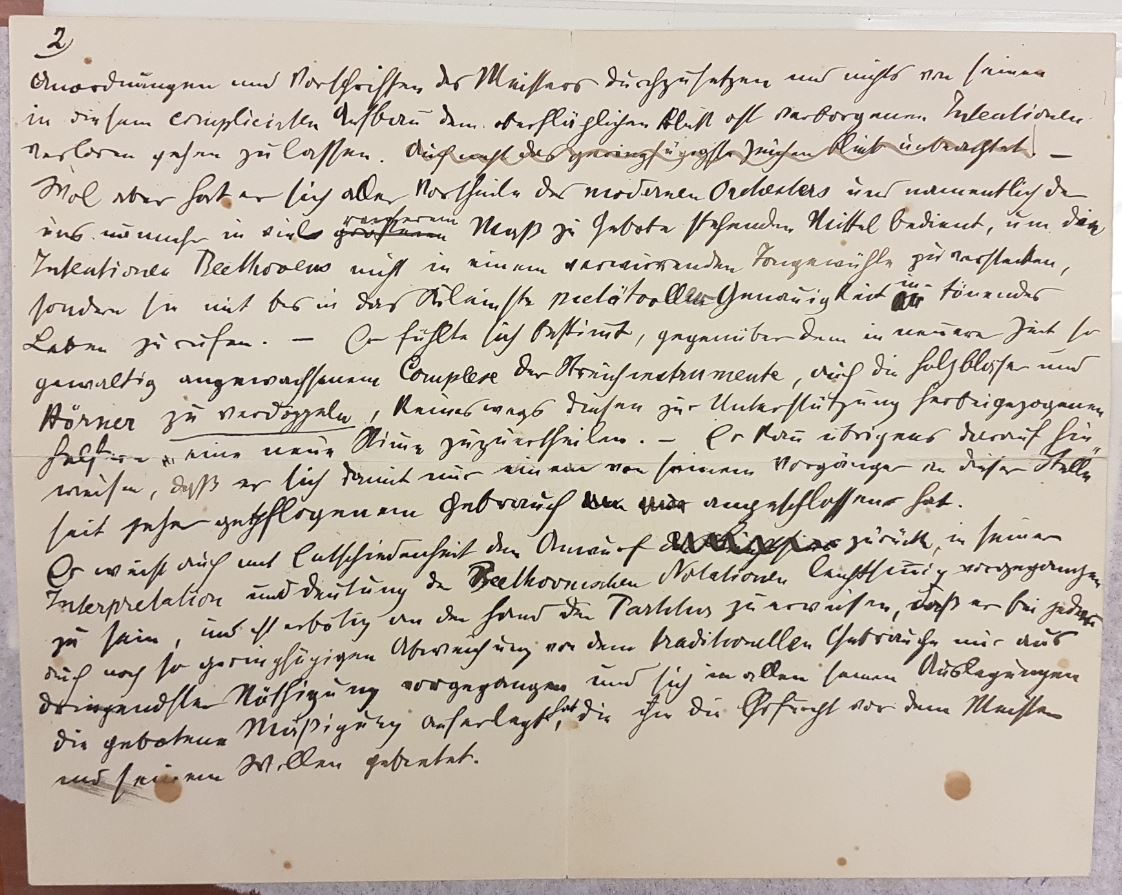 2)
Anordnungen und Vorschriften des Meisters durchzusetzen und nichts von seinen
in diesem complicirten Aufbau dem oberflächlichen Blick oft verborgenen Intentionen
verloren gehen zu lassen. Auch nicht das geringfügigste Zeichen blieb unbeachtet –
Wol aber hat er sich aller Vortheile des modernen Orchesters und namentlich der
uns nunmehr in viel größerem reicherem Maß zu Gebote stehenden Mittel bedient, um die
Intentionen Beethovens nicht in einem verwirrenden Tongewühle zu verstecken,
sondern sie mit bis in das Kleinste pietätvoller Genauigkeit in tönendes
Leben zu rufen. – Er fühlte sich bestimt, gegenüber dem in neuerer Zeit so
gewaltig angewachsenem Complexe der Streichinstrumente, auch die Holzbläser und
Hörner zu verdoppeln, keineswegs diesen zur Unterstützung herbeigezogenen
Helfern eine neue Stime zuzuertheilen. – Er kan übrigens darauf hin-
weisen, daß er sich damit nur einem von seinem Vorgänger an dieser Stelle
seit jeher gepflogenem Gebrauch angeschlossen hat.
Er weist auch mit Entschiedenheit den Anwurf zurück, in seiner
Interpretation und Deutung der Beethovenschen Notationen leichtsinnig vorgegangen
zu sein, und ist erbötig an der Hand der Partitur zu erweisen, daß er bei jeder
auch noch so geringfügigen Abweichung von dem traditionellen Gebrauche nur aus
dringendster Nöthigung vorgegangen und sich in allen seinen Auslegungen
die gebotene Mäßigung auferlegt hat, die ihm die Ehrfurcht vor dem Meister
und seinem Willen gebietet.